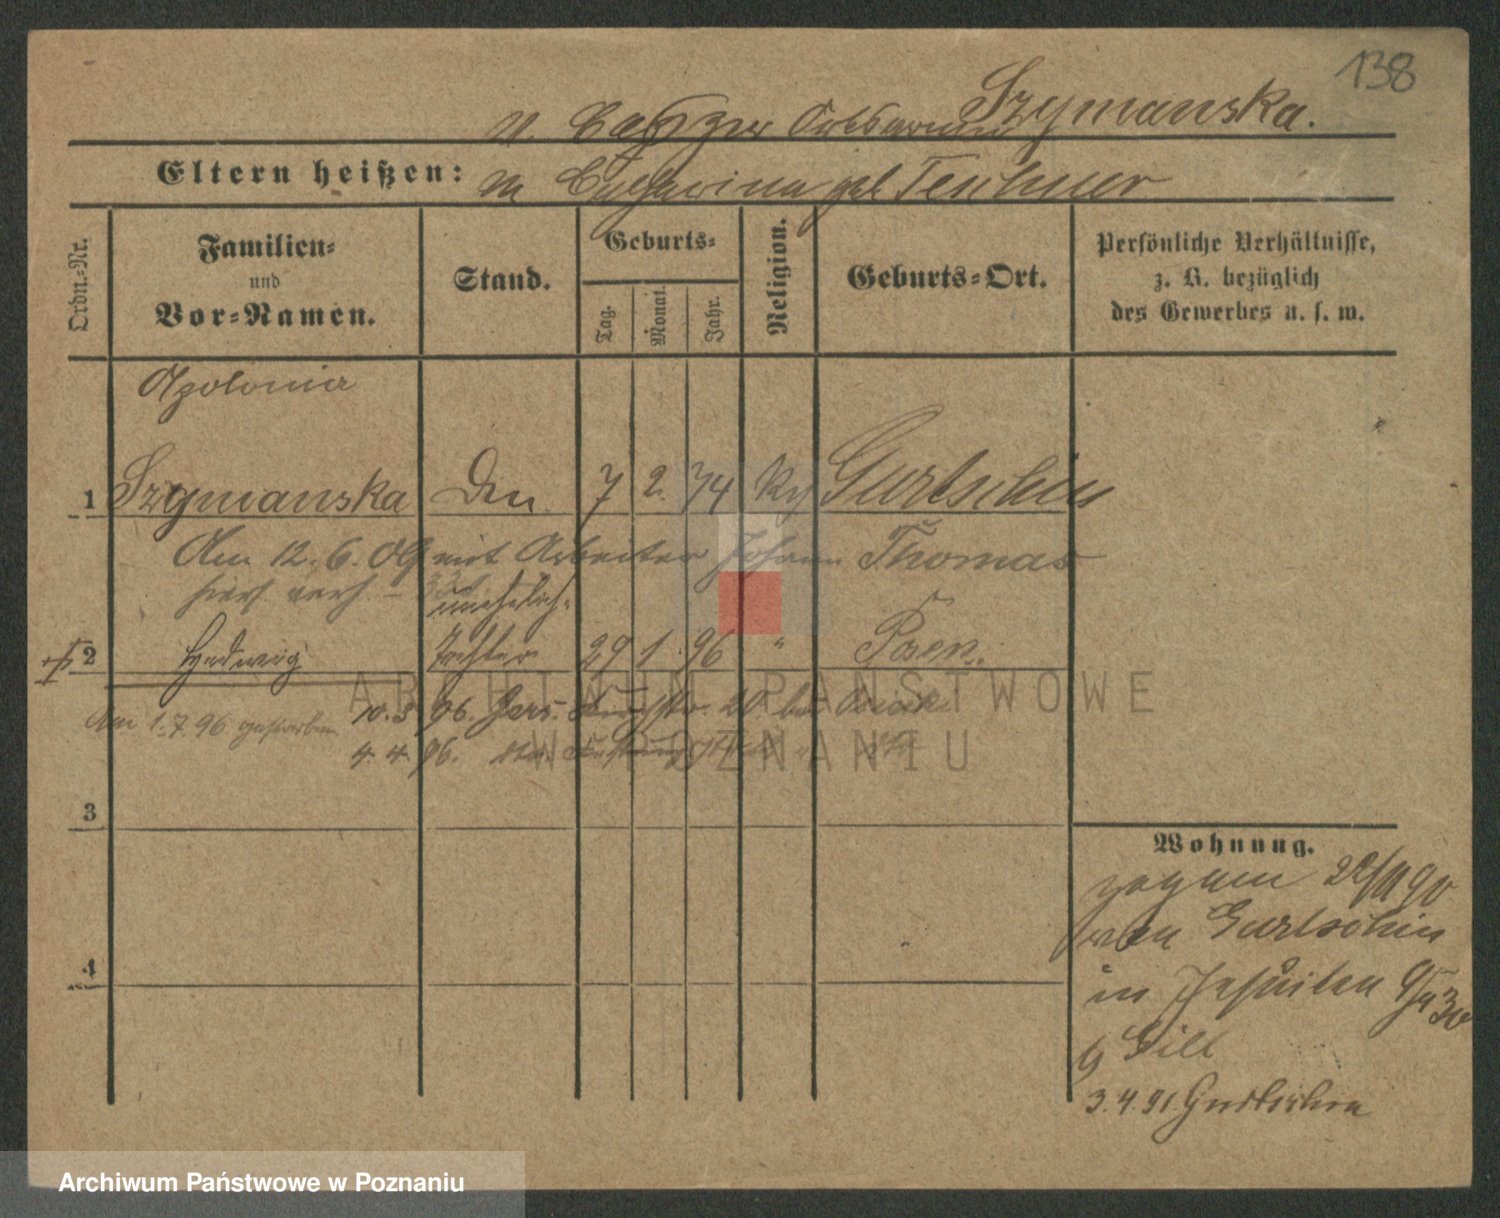 138
V. Caspar Szymanska.
Eltern heißen: M Catharina geb Teubner
Ordn.-Nr. Familien- und Vor-Namen. Stand. Geburts- Tag. Monat. Jahr. Religion. Geburts-Ort. Persönliche Verhältnisse, z. B. bezüglich des Gewerbes u. s. w.
Apolonia
1 Szymanska Dn. 7 2. 74 Kg Gurtschin
Am 12. 6. 09 mit Arbeiter Johann Thomas
hier verh
unehelich.
2 Hedwig Tochter 29 1 96 " Posen.
Am 1.7.96 gestorben 10.3 96.
4. 4. 96.
3
4
Wohnung.
zog am 22/11 90
von Gurtschin
in Jesuiten
b Gill
3.4.91. Gurtschin
ARCHIWUM PAŃSTWOWE
W POZNANIU
Archiwum Państwowe w Poznaniu